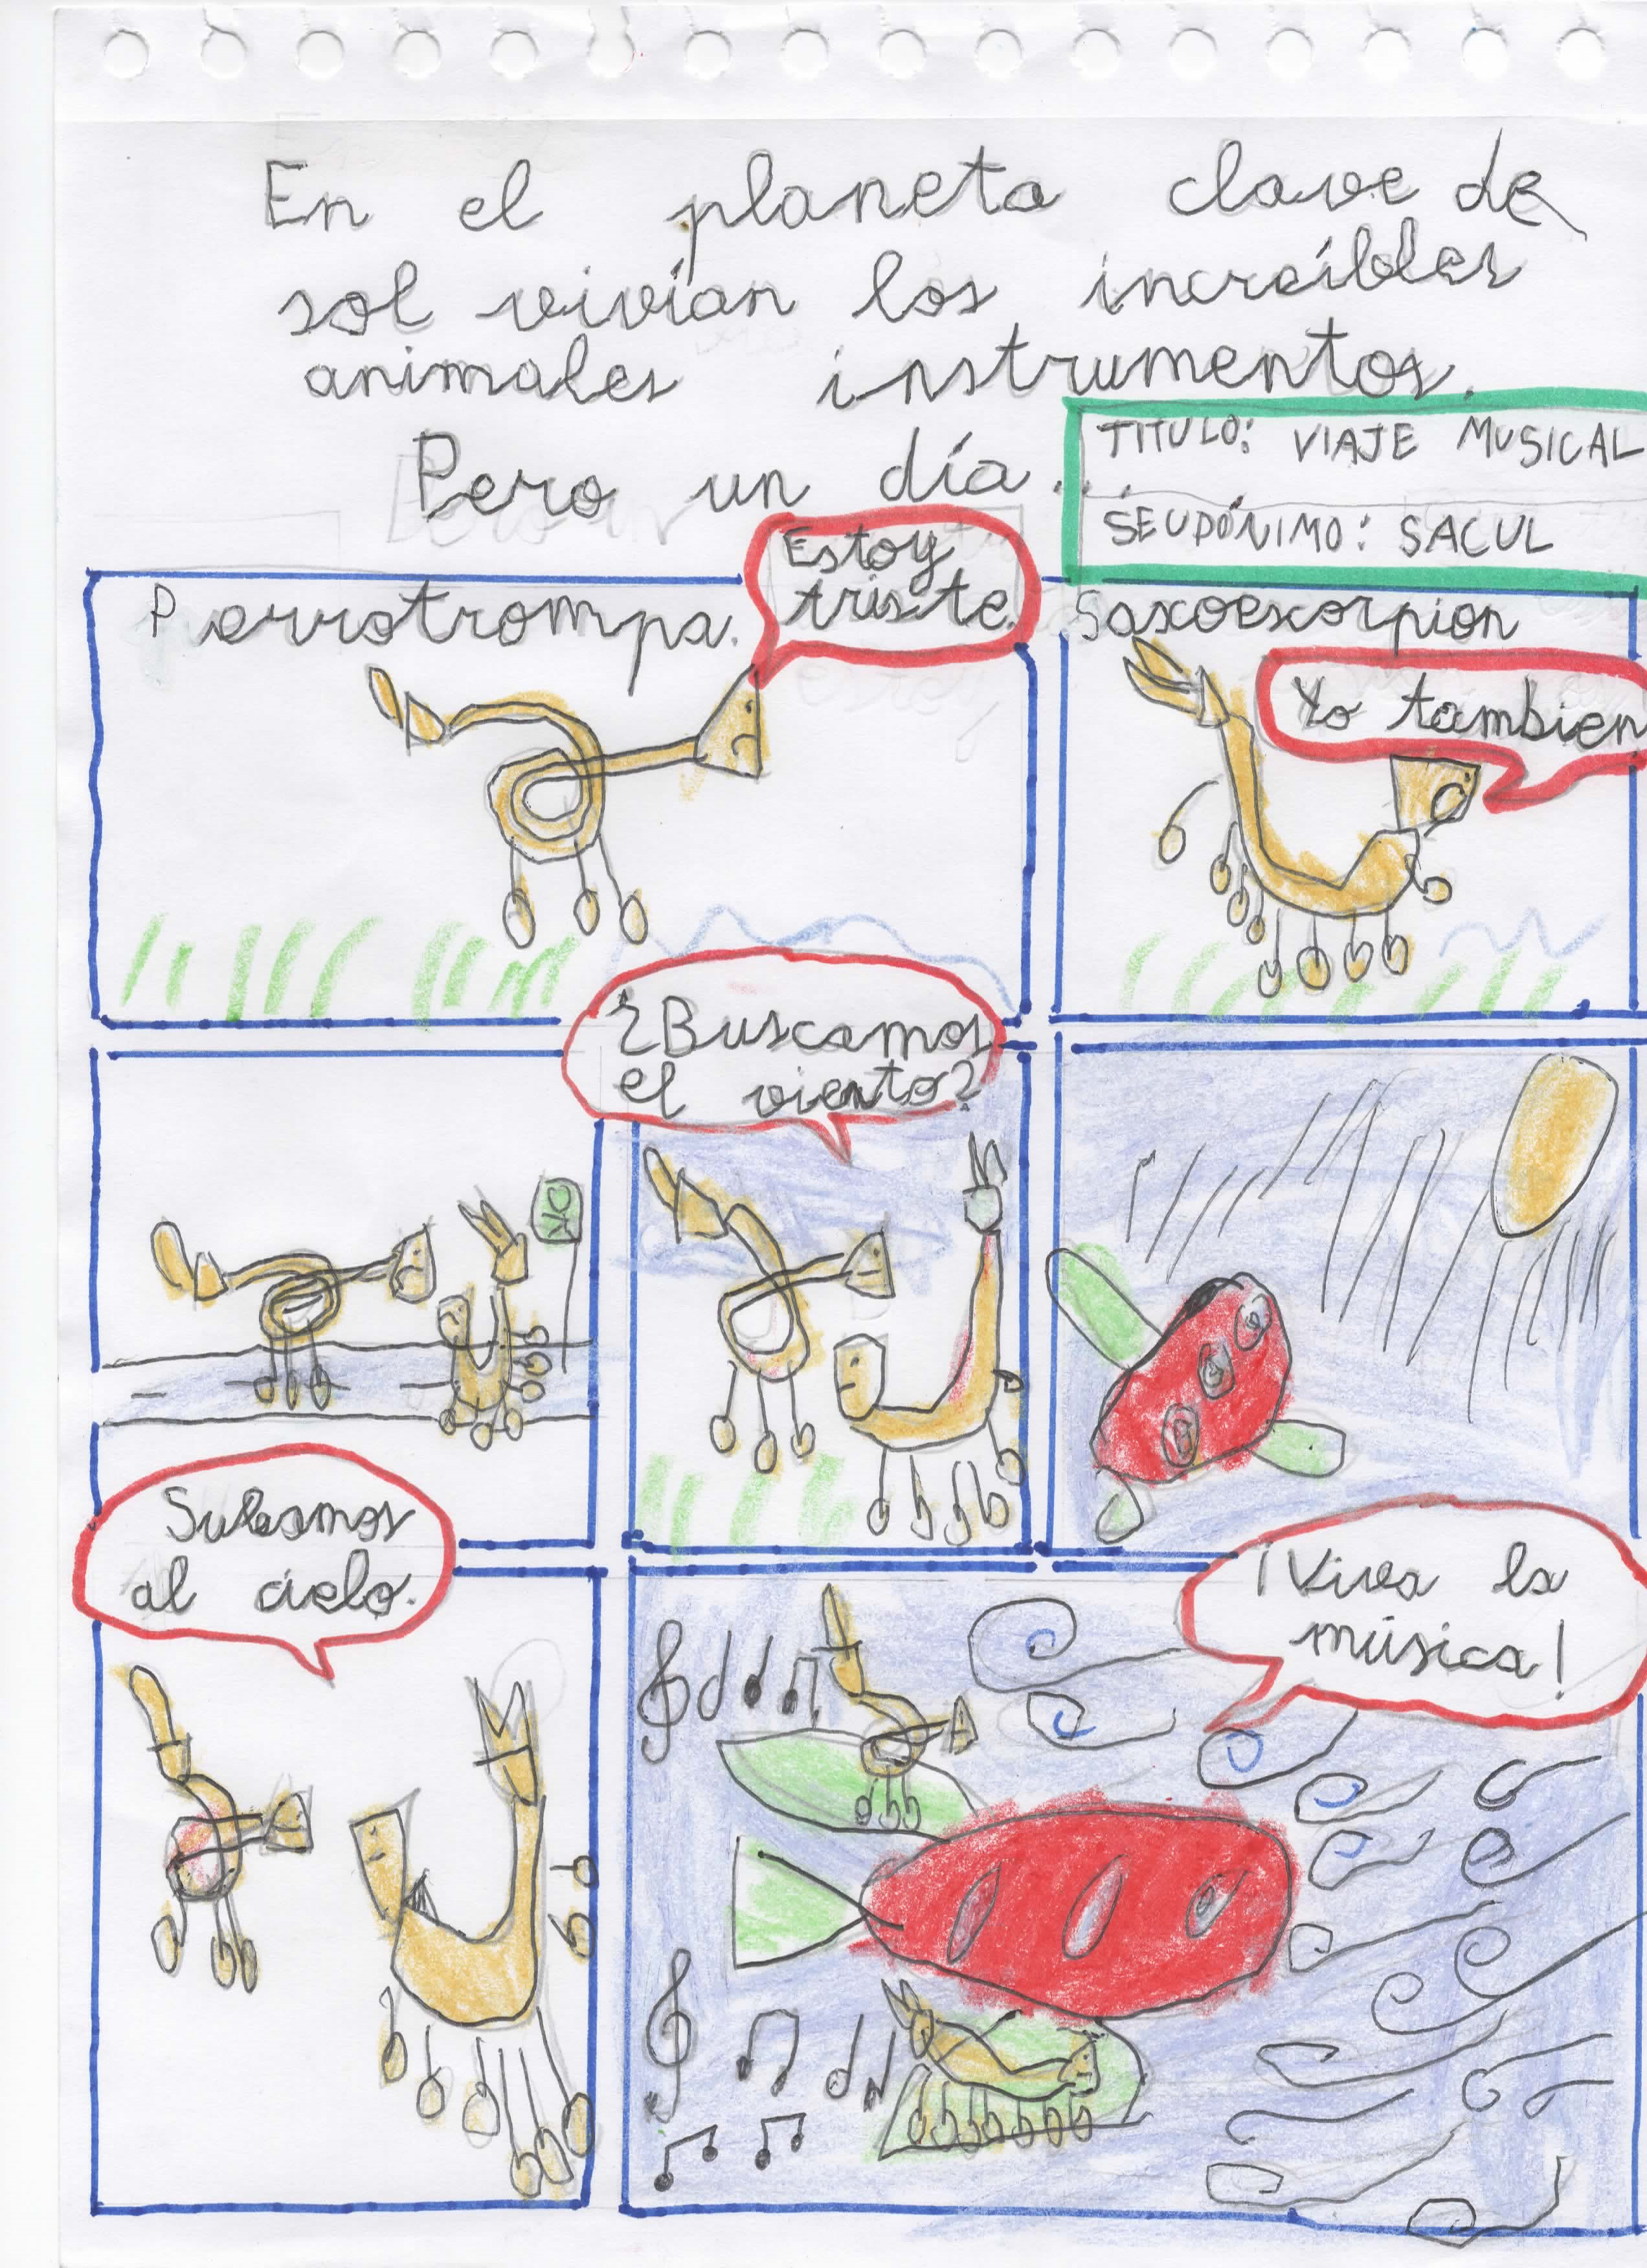 En el planeta clave de
sol vivían los increíbles
animales instrumentos.
Pero un día...
TITULO: VIAJE MUSICAL
SEUDÓNIMO: SACUL
Perrotrompa.
Estoy
triste.
Saxoescorpion
Yo tambien
¿Buscamos
el viento?
Subamos
al cielo.
¡Viva la
música!